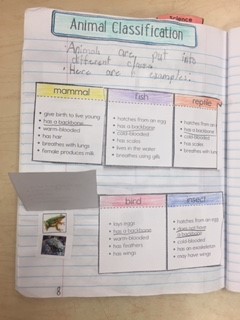 Science
Animal Classification
Animals are put into
different
Here are examples.
mammal
• give birth to live young
• has a backbone
• warm-blooded
• has hair
• breathes with lungs
• female produces milk
fish
• hatches from an egg
• has a backbone
• cold-blooded
• has scales
• lives in the water
• breathes using gills
reptile
• hatches from an
• has a backbone
• cold-blooded
• has scales
• breathes with lun
bird
• lays eggs
• has a backbone
• warm-blooded
• has feathers
• has wings
insect
• hatches from an egg
• does not have
a backbone
• cold blooded
• has an exoskeleton
• may have wings
8